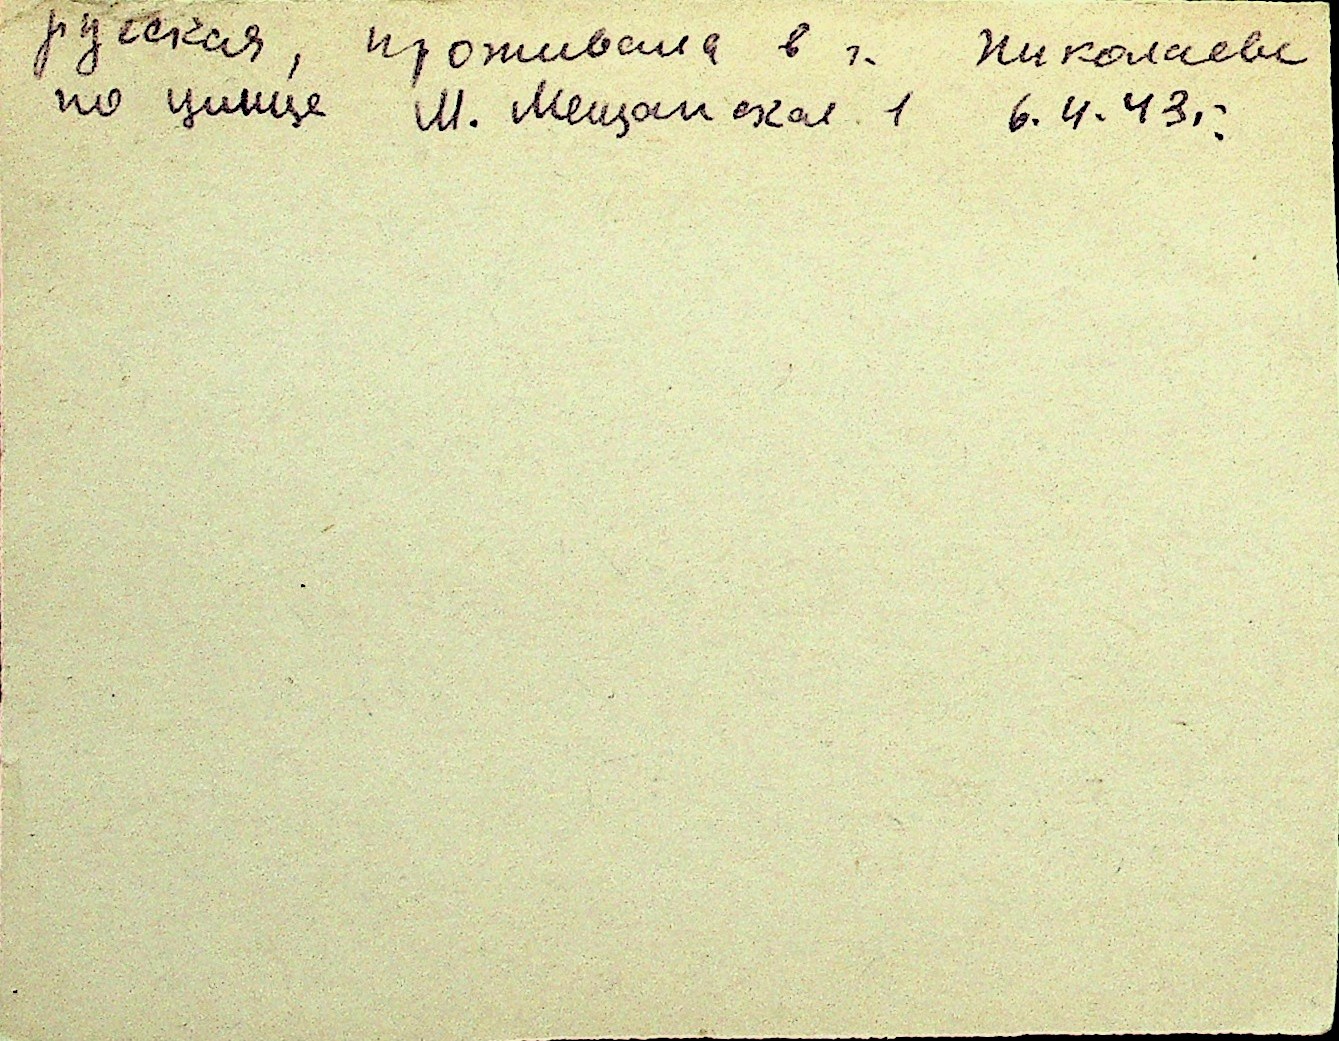 русская, проживала в г. Николаеве
по улице М. Мещанская 1 6.4.43г.